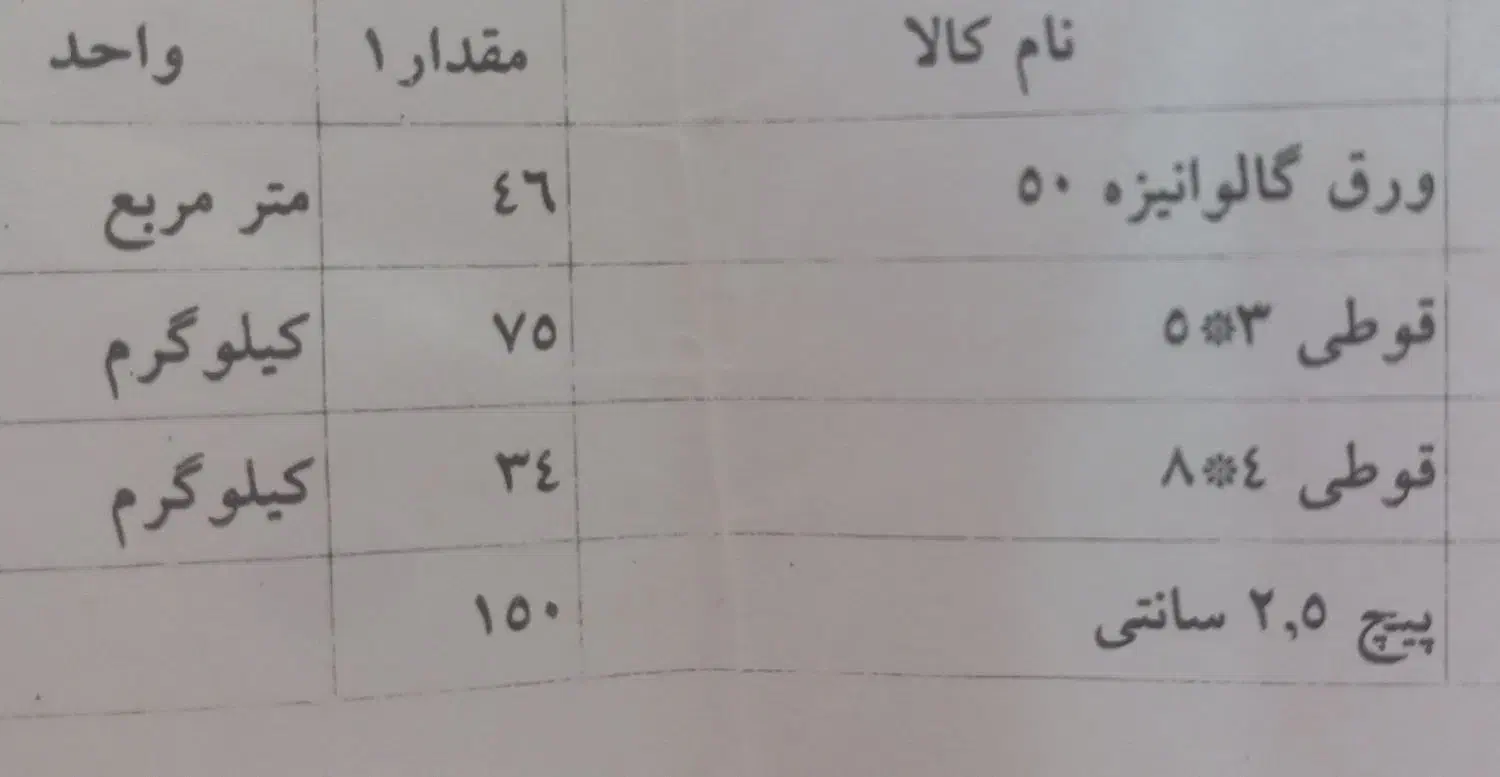 نام کالا مقدار۱ واحد
ورق گالوانیزه ۵۰ ٤٦ متر مربع
قوطی ۳*۵ ۷۵ کیلوگرم
قوطی ٤*۸ ۳٤ کیلوگرم
پیچ ۲,۵ سانتی ۱۵۰